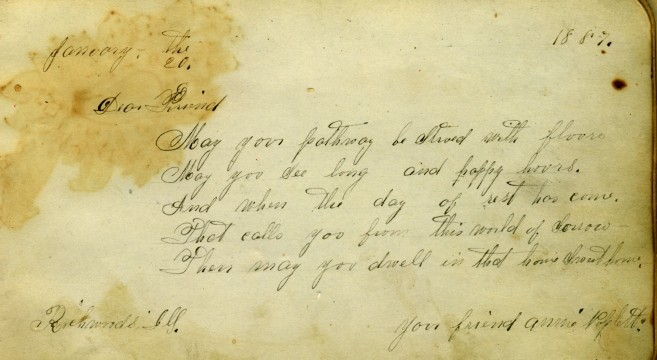 January - the 1887.
20.
Dear Friend
May your pathway be strued with floors
May you see long and happy hours.
And when the day of rest has come.
That calls you from this world of sorrow
Then may you dwell in that home sweet home.
Richwoods Ill. Your friend Annie